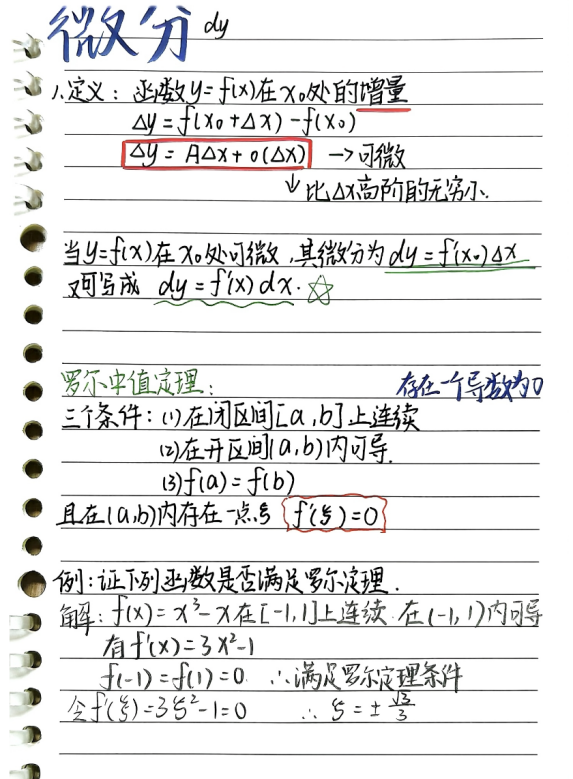 微分 dy
1.定义：函数y=f(x)在x₀处的增量
Δy=f(x₀+Δx)-f(x₀)
Δy=AΔx+o(Δx) →可微
↓比Δx高阶的无穷小.
当y=f(x)在x₀处可微,其微分为dy=f'(x₀)Δx
又可写成 dy=f'(x)dx. ☆
罗尔中值定理: 存在一个导数为0
三个条件: (1)在闭区间[a,b]上连续
(2)在开区间(a,b)内可导.
(3)f(a)=f(b)
且在(a,b)内存在一点ξ f'(ξ)=0
例:证下列函数是否满足罗尔定理.
解: f(x)=x³-x在[-1,1]上连续.在(-1,1)内可导
有f'(x)=3x²-1
f(-1)=f(1)=0. ∴满足罗尔定理条件
令f'(ξ)=3ξ²-1=0 ∴ξ=±√3/3